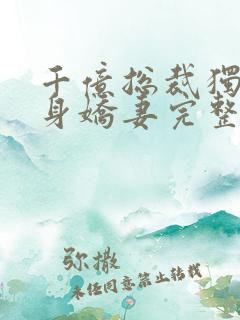 千億總裁獨
身嬌妻完整
弥撒
未经同意禁止转载